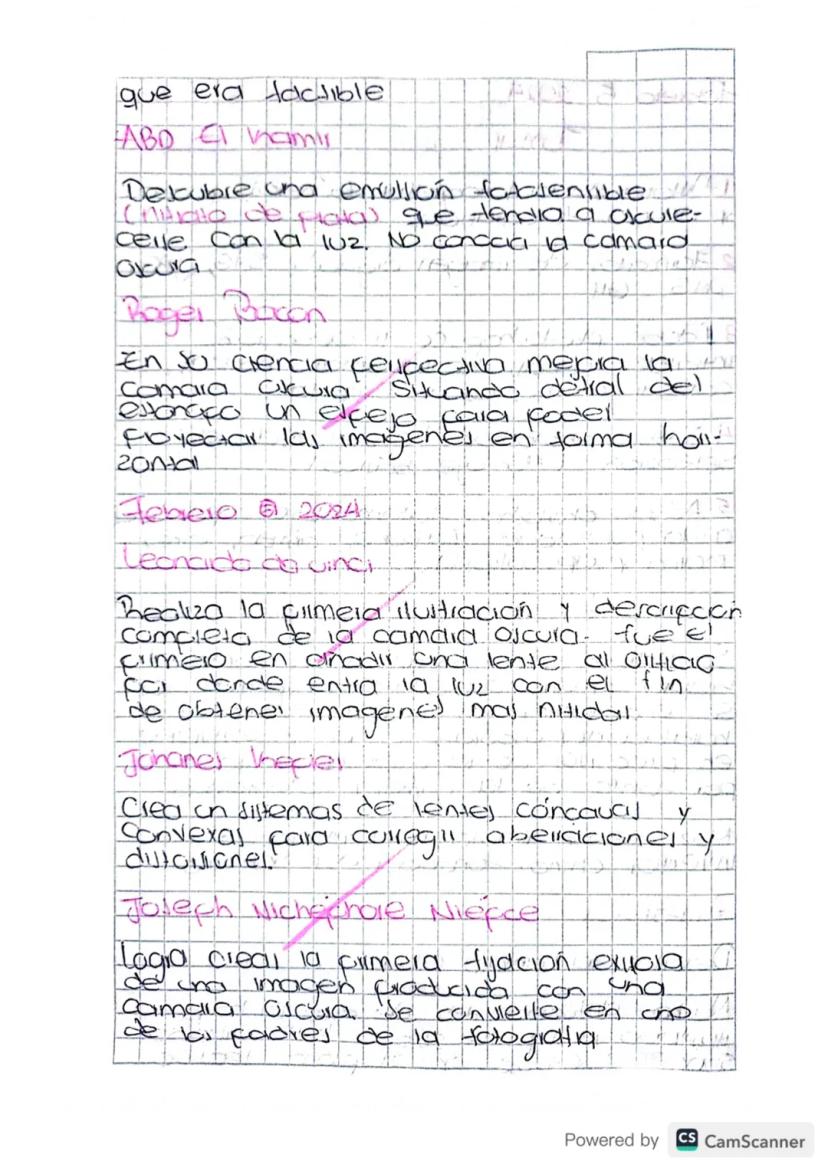 que era factible
ABD El Khamir
Descubre una emulsión fotosensible
(nitrato de plata) que tendía a oscure-
cerse con la luz. No conocía la cámara
oscura.
Roger Bacon
En su ciencia perspectiva mejora la
camara oscura. Situando detras del
estenopo un espejo para poder
proyectar las imagenes en forma hori-
zontal
Febrero 2024
Leonardo da vinci
Realiza la primera ilustración y descripción
completa de la camara oscura. fue el
primero en añadir una lente al orificio
por donde entra la luz con el fin
de obtener imagenes mas nitidas.
Johanes Kepler
Crea un sistemas de lentes cóncavas y
convexas para corregir aberraciones y
distorsiones.
Joseph Nichephore Niepce
Logra crear la primera fijación exitosa
de una imagen producida con una
camara oscura. Se convierte en uno
de los padres de la fotografia
Powered by CS CamScanner